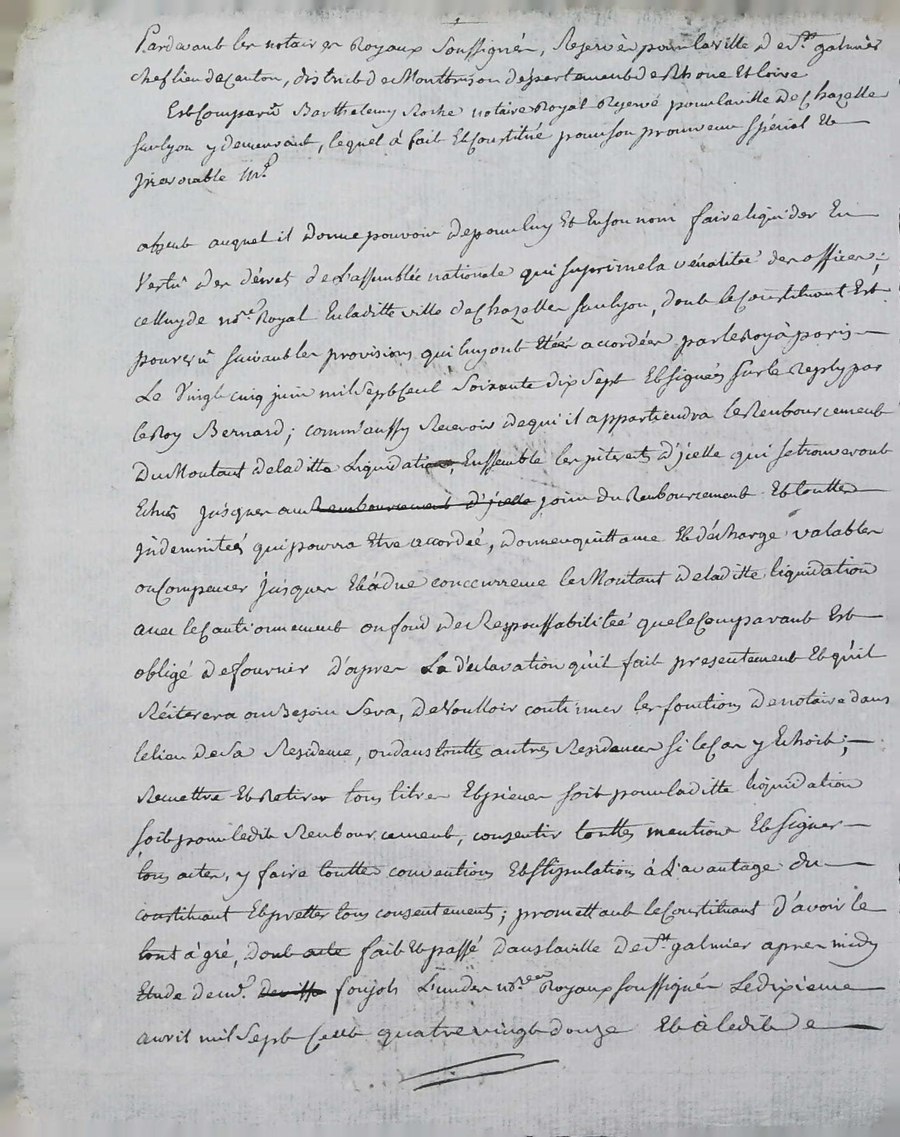 Pardevant les notaires Royaux soussignés, Reservés pour la ville de St galmier
chef lieu de Canton, district de Montbrison departement de Rhone Et Loire
Est Comparu Barthelemy Roche notaire Royal Reservé pour la ville de Chazelle
sur lyon y demeurant, lequel à fait Et Constitué pour son procureur spécial Et
Irrevocable Mr
absent auquel il donne pouvoir de pour luy Et En son nom faire liquider En
Vertu des décrets de L'assemblée nationale qui suprime la vénalitée des offices;
celluy de nore Royal En la ditte ville de Chazelles sur lyon, dont le Constituant Est
pourvû suivant les provisions qui luy ont Etées accordées par le Roy à paris
Le Vingt cinq juin mil sept Cent soixante dix sept Et signées sur le Reply par
le Roy Bernard; comm'aussy Recevoir de qui il appartiendra le Renboursement
Du Montant de la ditte Liquidation, Ensemble les interets d'jcelle qui se trouveront
Echus jusques au Remboursement d'jcelle jour du Renboursement Et touttes
jndemnitées qui pourra Etre accordée, donner quittance Et décharge valables
ou Compenser jusques Et à due concurrence le Montant de la ditte liquidation
avec le Cautionnement ou fond de Responssabilitée que le Comparant Est
obligé de fournir d'apres La déclaration qu'il fait presentement Et qu'il
Réiterera ou Besoin Sera, de Voulloir continuer les fonctions de notaire dans
le lieu de Sa Residence, ou dans toutte autres Residences si le Cas y Echoit;
Remettre Et Retirer tous titres Et pieces soit pour la ditte liquidation
soit pour le dit Renboursement, consentir touttes mentions Et signer
tous actes, y faire touttes conventions Et Stipulations à L'avantage du
constituant Et pretter tous consentements; promettant le Constituant d'avoir le
tout à gré, dont acte fait Et passé dans la ville de St galmier apres midy
Etude de me foujols L'un des nores Royaux soussignés Le dixieme
avril mil Sept Cent quatre vingt douze Et à le dit de